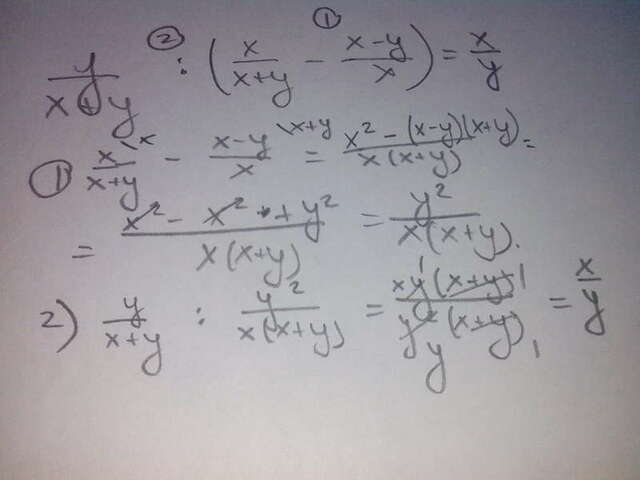 ② ①
y/(x+y) : (x/(x+y) - (x-y)/x) = x/y
① x\x/(x+y) - (x-y)\x+y/x = (x² - (x-y)(x+y))/(x(x+y)) =
= (x² - x² + y²)/(x(x+y)) = y²/(x(x+y)).
2) y/(x+y) : y²/(x(x+y)) = (xy¹(x+y)¹)/(y²y(x+y)₁) = x/y